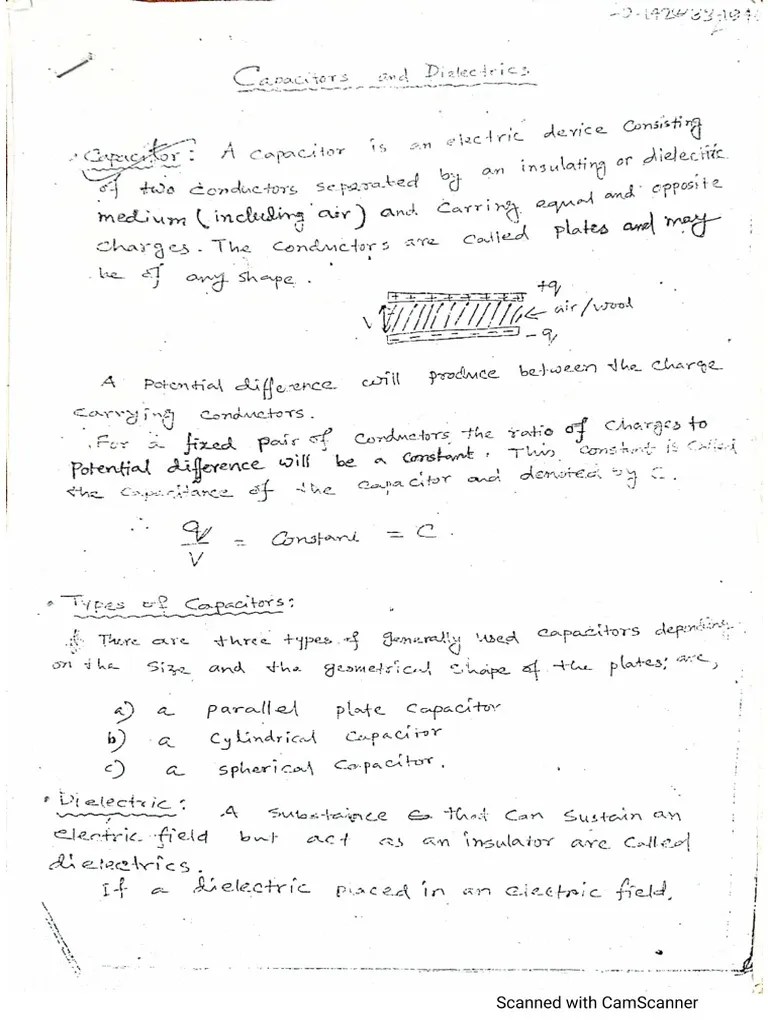 Capacitors and Dielectrics
Capacitor: A capacitor is an electric device consisting
of two conductors separated by an insulating or dielectric
medium (including air) and carring equal and opposite
charges. The conductors are called plates and may
be of any shape.
+q
V
air/wood
-q
A potential difference will produce between the charge
carrying conductors.
For a fixed pair of conductors the ratio of charges to
potential difference will be a constant. This constant is called
the capacitance of the capacitor and denoted by C.
∴ q/V = Constant = C.
• Types of Capacitors:
There are three types of generally used capacitors depending
on the size and the geometrical shape of the plates; are,
a) a parallel plate capacitor
b) a cylindrical capacitor
c) a spherical capacitor.
• Dielectric: A substaince that can sustain an
electric field but act as an insulator are called
dielectrics.
If a dielectric placed in an electric field,
Scanned with CamScanner